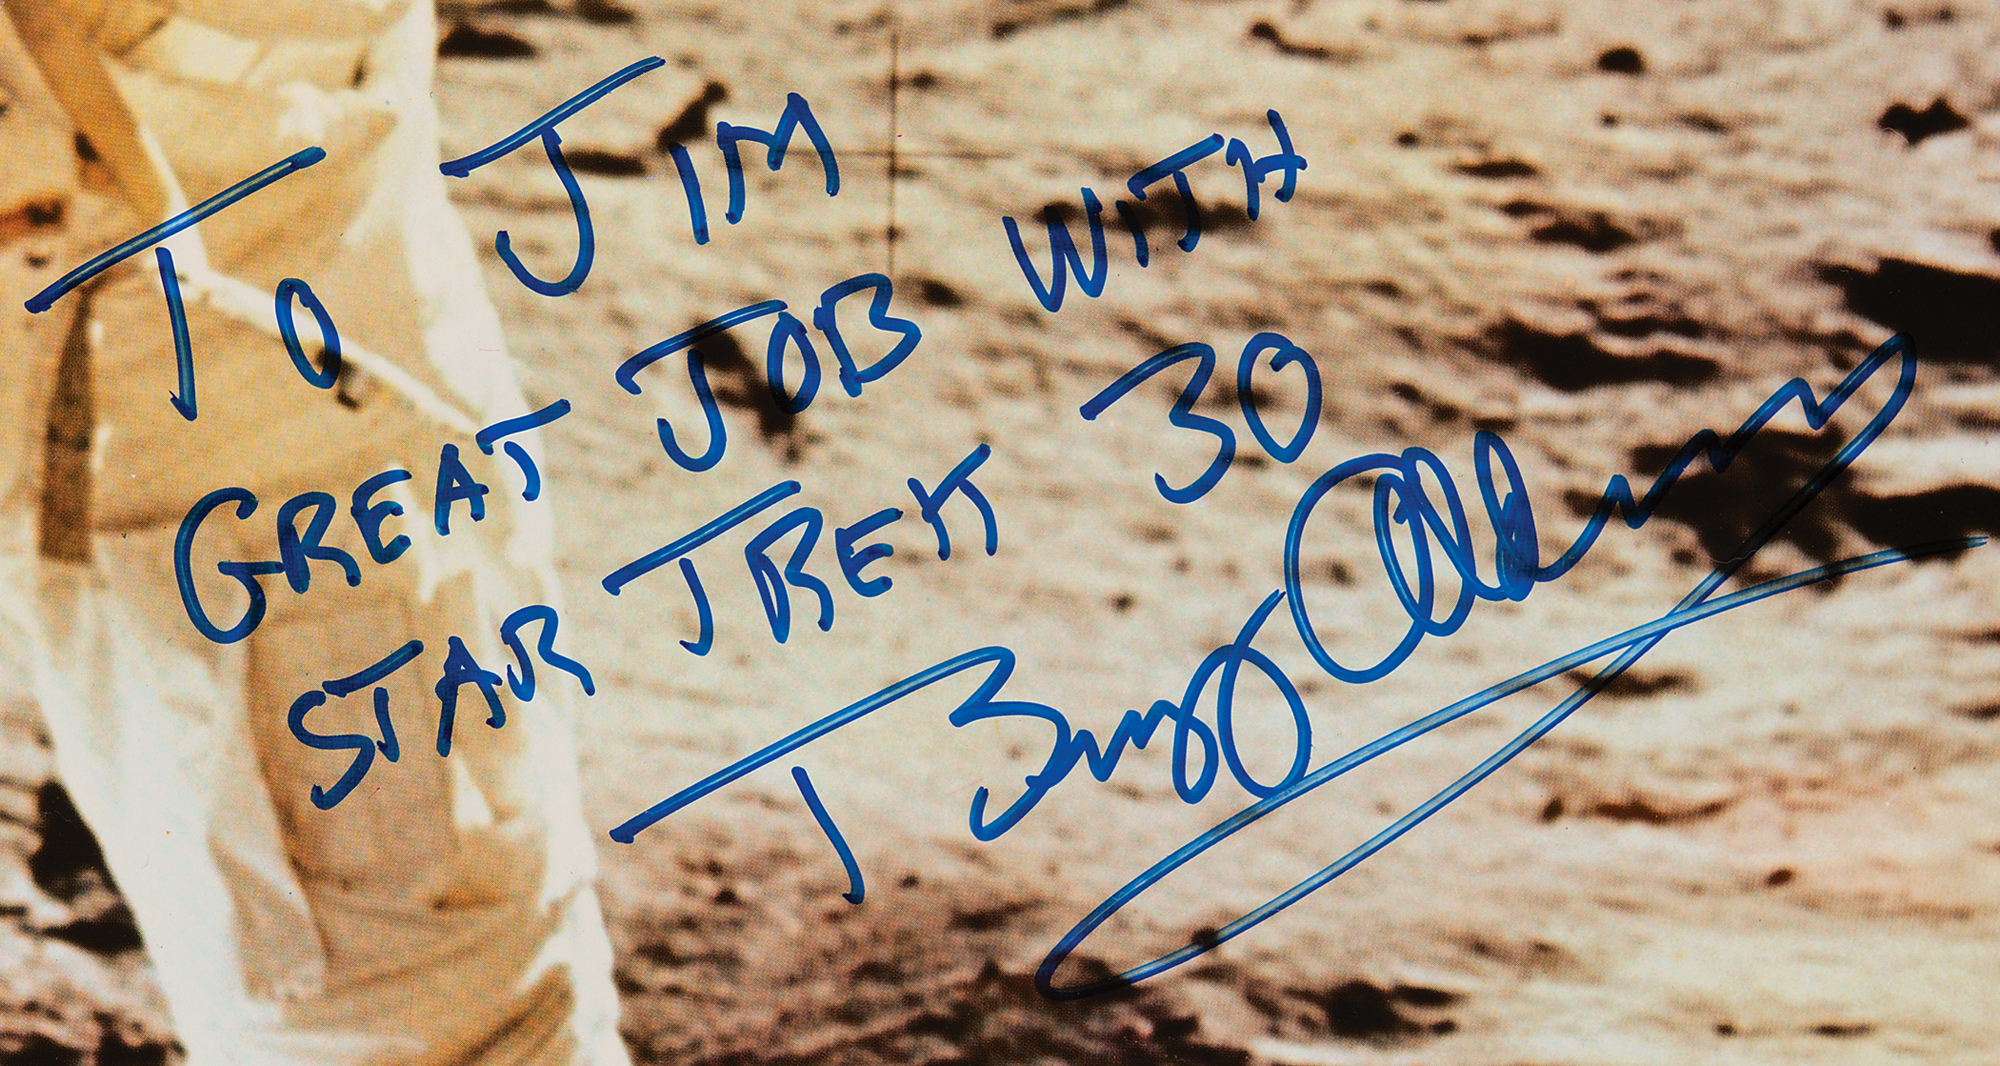 TO JIM
GREAT JOB WITH
STAR TREK 30
Buzz Aldrin